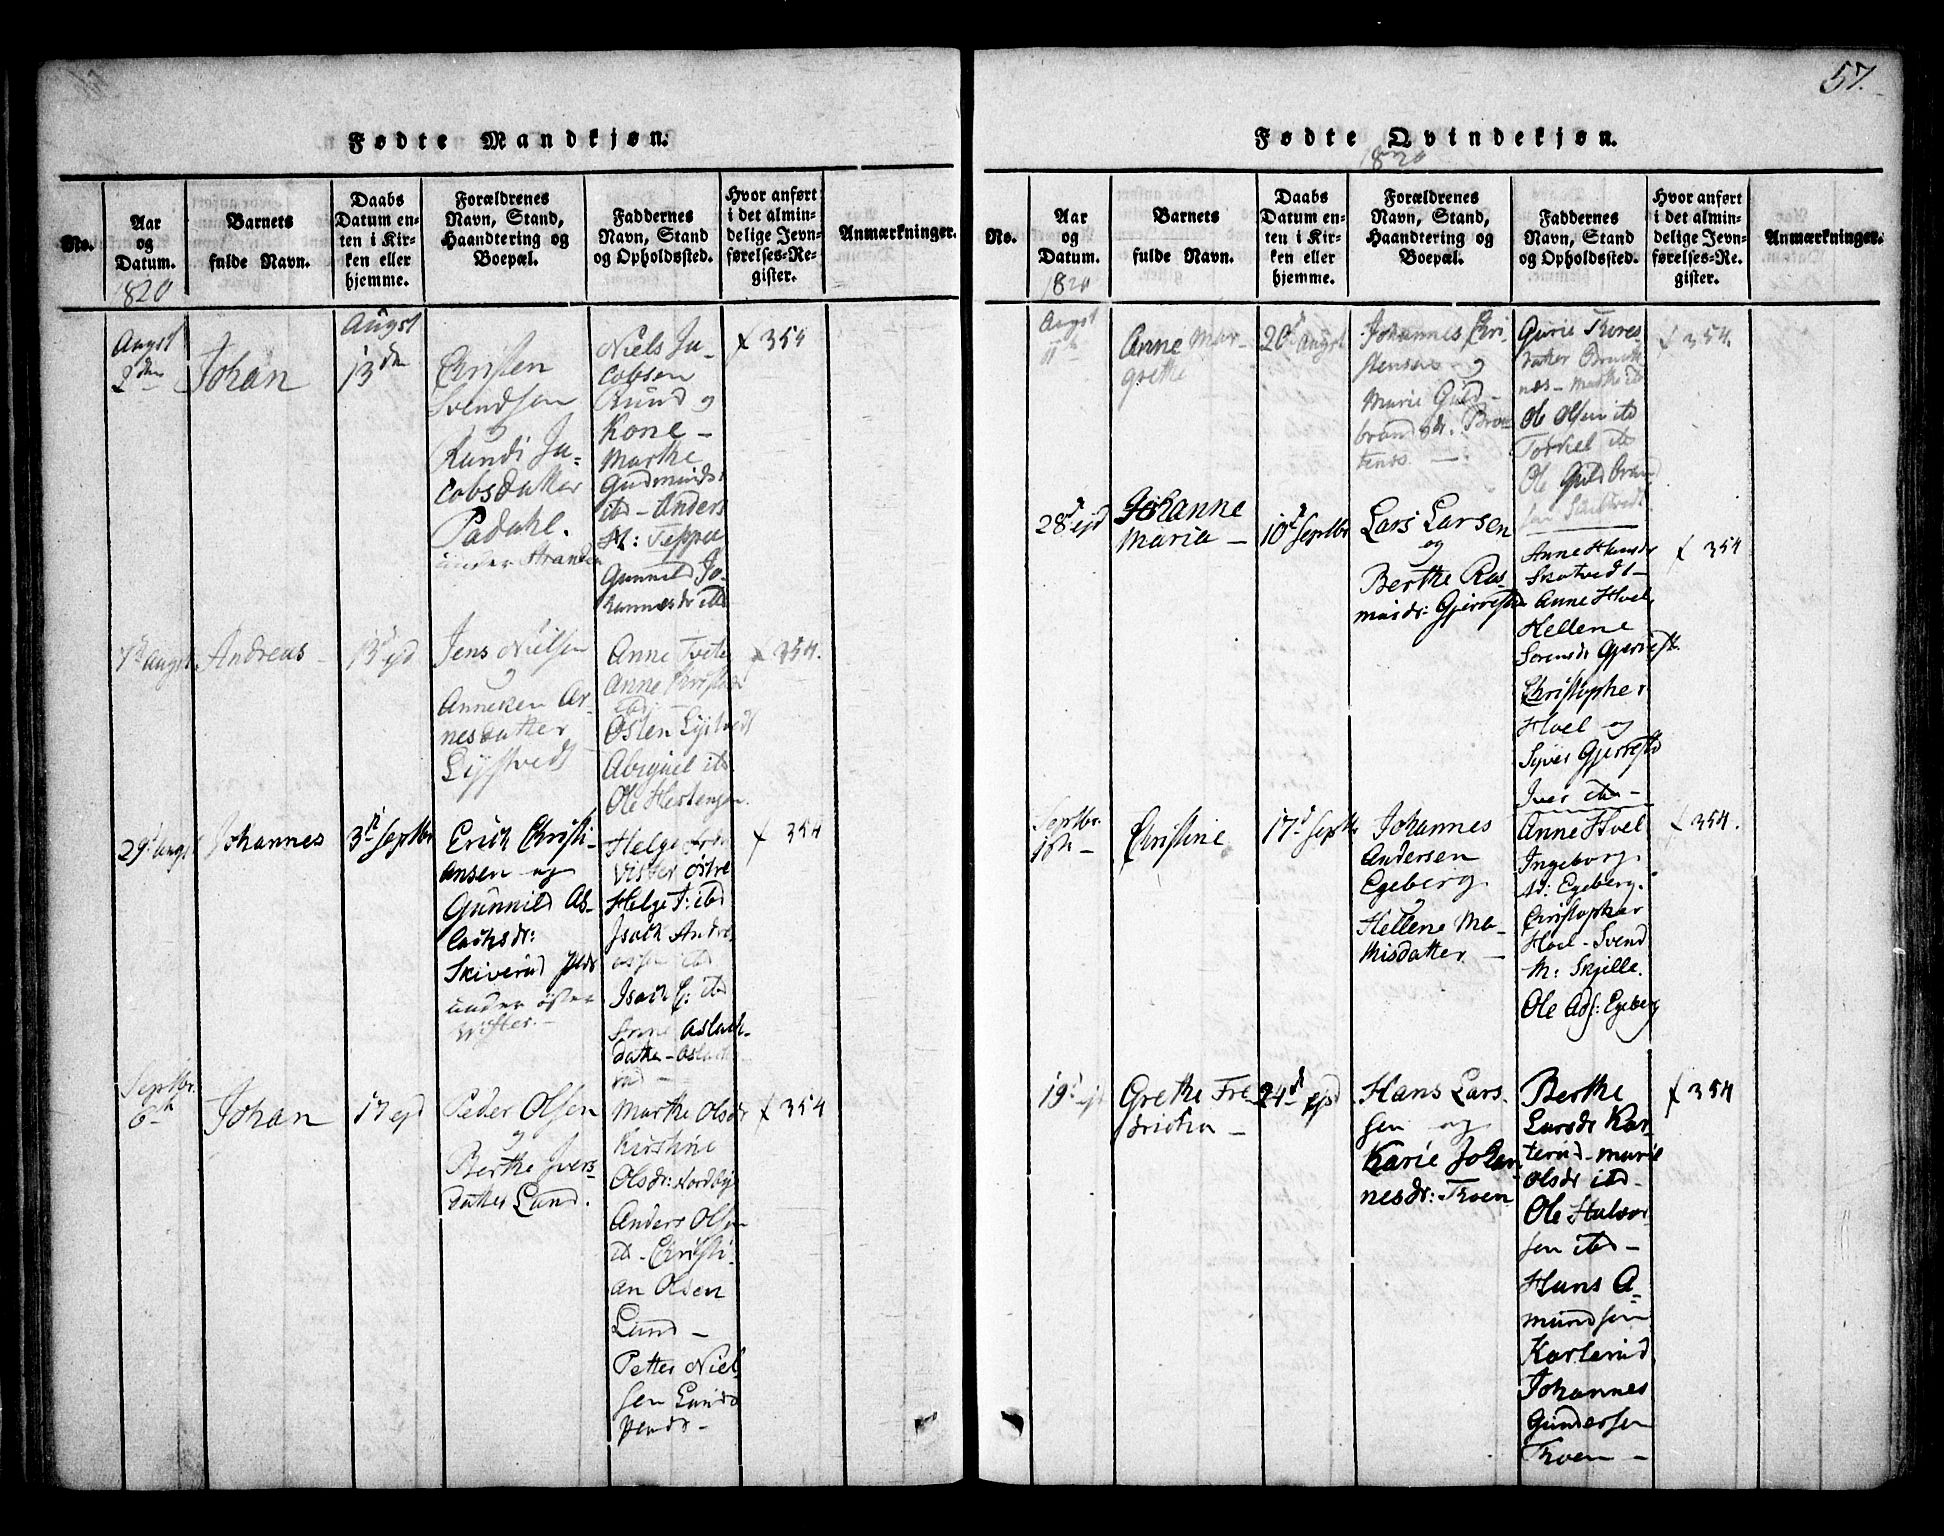 57.
Fødte Mandkjøn.
No.
Aar
og
Datum.
1820
Barnets
fulde Navn.
Daabs
Datum en-
ten i Kir-
ken eller
hjemme.
Forældrenes
Navn, Stand,
Haandtering og
Boepæl.
Faddernes
Navn, Stand
og Opholdssted.
Hvor anført
i det almin-
delige Jevn-
førelses-Re-
gister.
Anmærkninger.
Augst
2den
Johan
Augst
13den
Christen
Svendsen
og
Randi Ja-
cobsdatter
Padahl.
under Stranden
Niels Ja-
cobsen
Rund og
Kone -
Marthe
Gudmundsd
itd - Anders
A: Teppen
Gunnild Jo-
hannesdr itd
x 354
7d Augst
Andreas
13d ejd
Jens Nielsen
og
Anneken Ar-
nesdatter
Lystvedt
Anne Tvete
Anne Christens
itd -
Osten Lystvedt
Abiguel itd
Ole Hestengen
x 354.
29d augst
Johannes
3d Septbr
Erich Christi-
ansen og
Gunnild As-
lachsdr:
Skiverud Plds
under østre
Vister. -
Helge
Vister østre
Helge T: itd
Isach Andre-
assen itd
Isach C: itd
Anne Aslach-
datter - Aslach-
rud -
x 354
Septbr.
6th
Johan
17 ejd
Peder Olsen
og
Berthe Ivers-
datter Lund.
Marthe Olsdr
Kirstine
Olsdr: Nordby
Anders Olsen
itd - Christi-
an Olsen
Lund -
Petter Niel-
sen Lunds
Pend: -
x 354
Fødte Qvindekjøn.
1820
No.
Aar
og
Datum.
1820
Barnets
fulde Navn.
Daabs
Datum en-
ten i Kir-
ken eller
hjemme.
Forældrenes
Navn, Stand,
Haandtering og
Boepæl.
Faddernes
Navn, Stand
og Opholdssted.
Hvor anført
i det almin-
delige Jevn-
førelses-Re-
gister.
Anmærkninger.
Augst
11th
Anne Mar-
grethe
20d Augst
Johannes Chri-
stensen og
Marie Guld-
brandsdr. Brau-
tenes -
Gurie Thores
datter Braute
nes - Marthe itd
Ole Olsen itd
Torkel itd
Ole Guldbrand
sen Skotvedt
x 354.
28d ejd
Johanne
Maria -
10d Septbr
Lars Larsen
og
Berthe Ras-
musdr: Gjerrestad
Anne Hansdr
Skotvedt -
Anne Hvel
Hellene
Sorensdr Gjerrest.
Christopher
Hvel og
Syver Gjerrestad
Iver itd -
x 354
Septbr.
10th -
Christine
17d Septbr
Johannes
Andersen
Egeberg
og
Hellene Ma-
thisdatter -
Anne Hvel
Ingeborg
Ad: Egeberg.
Christopher
Hvel - Svend
M: Skjelle.
Ole Ads: Egeberg
x 354.
19d ejd
Grethe Fre-
dricha -
24d ejd
Hans Lars-
sen og
Karie Johan-
nesdr: Troen
Berthe
Larsdr Kar-
terud - Marie
Olsdr itd -
Ole Halvor-
sen itd -
Hans A-
mundsen
Karterud
Johannes
Gundersen
Troen -
x 354